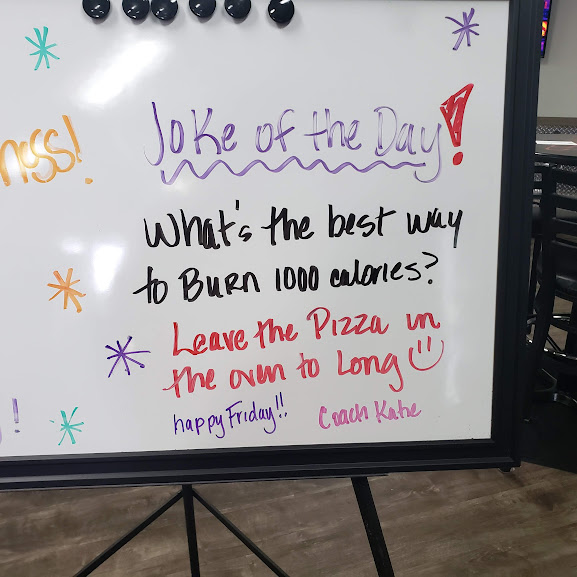 Joke of the Day!
What's the best way
to Burn 1000 calories?
Leave the Pizza in
the oven to Long
happy Friday!!
Coach Katie